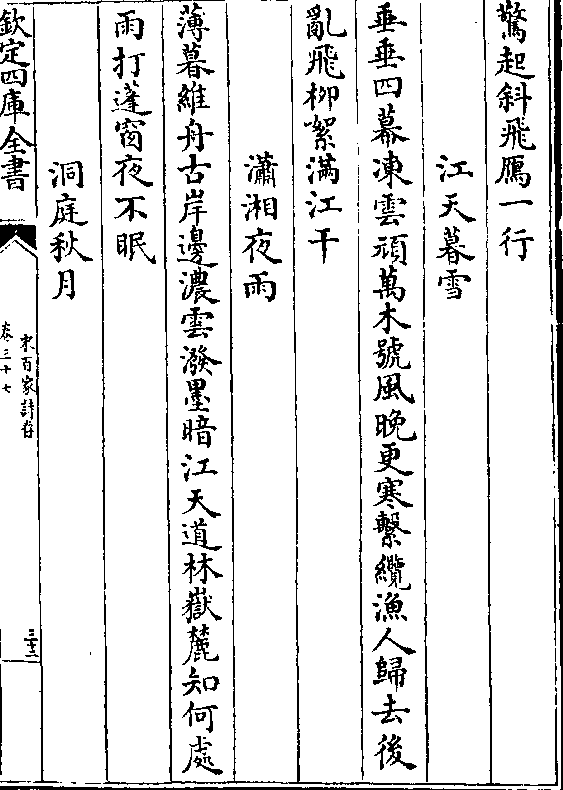 驚起斜飛鴈一行
江天暮雪
垂垂四幕凍雲頑萬木號風晩更寒繫纜漁人歸去後
亂飛柳絮滿江干
瀟湘夜雨
薄暮維舟古岸邊濃雲潑墨暗江天道林嶽麓知何處
雨打蓬窗夜不眠
洞庭秋月
欽定四庫全書
宋百家詩存
卷三十七
三十二